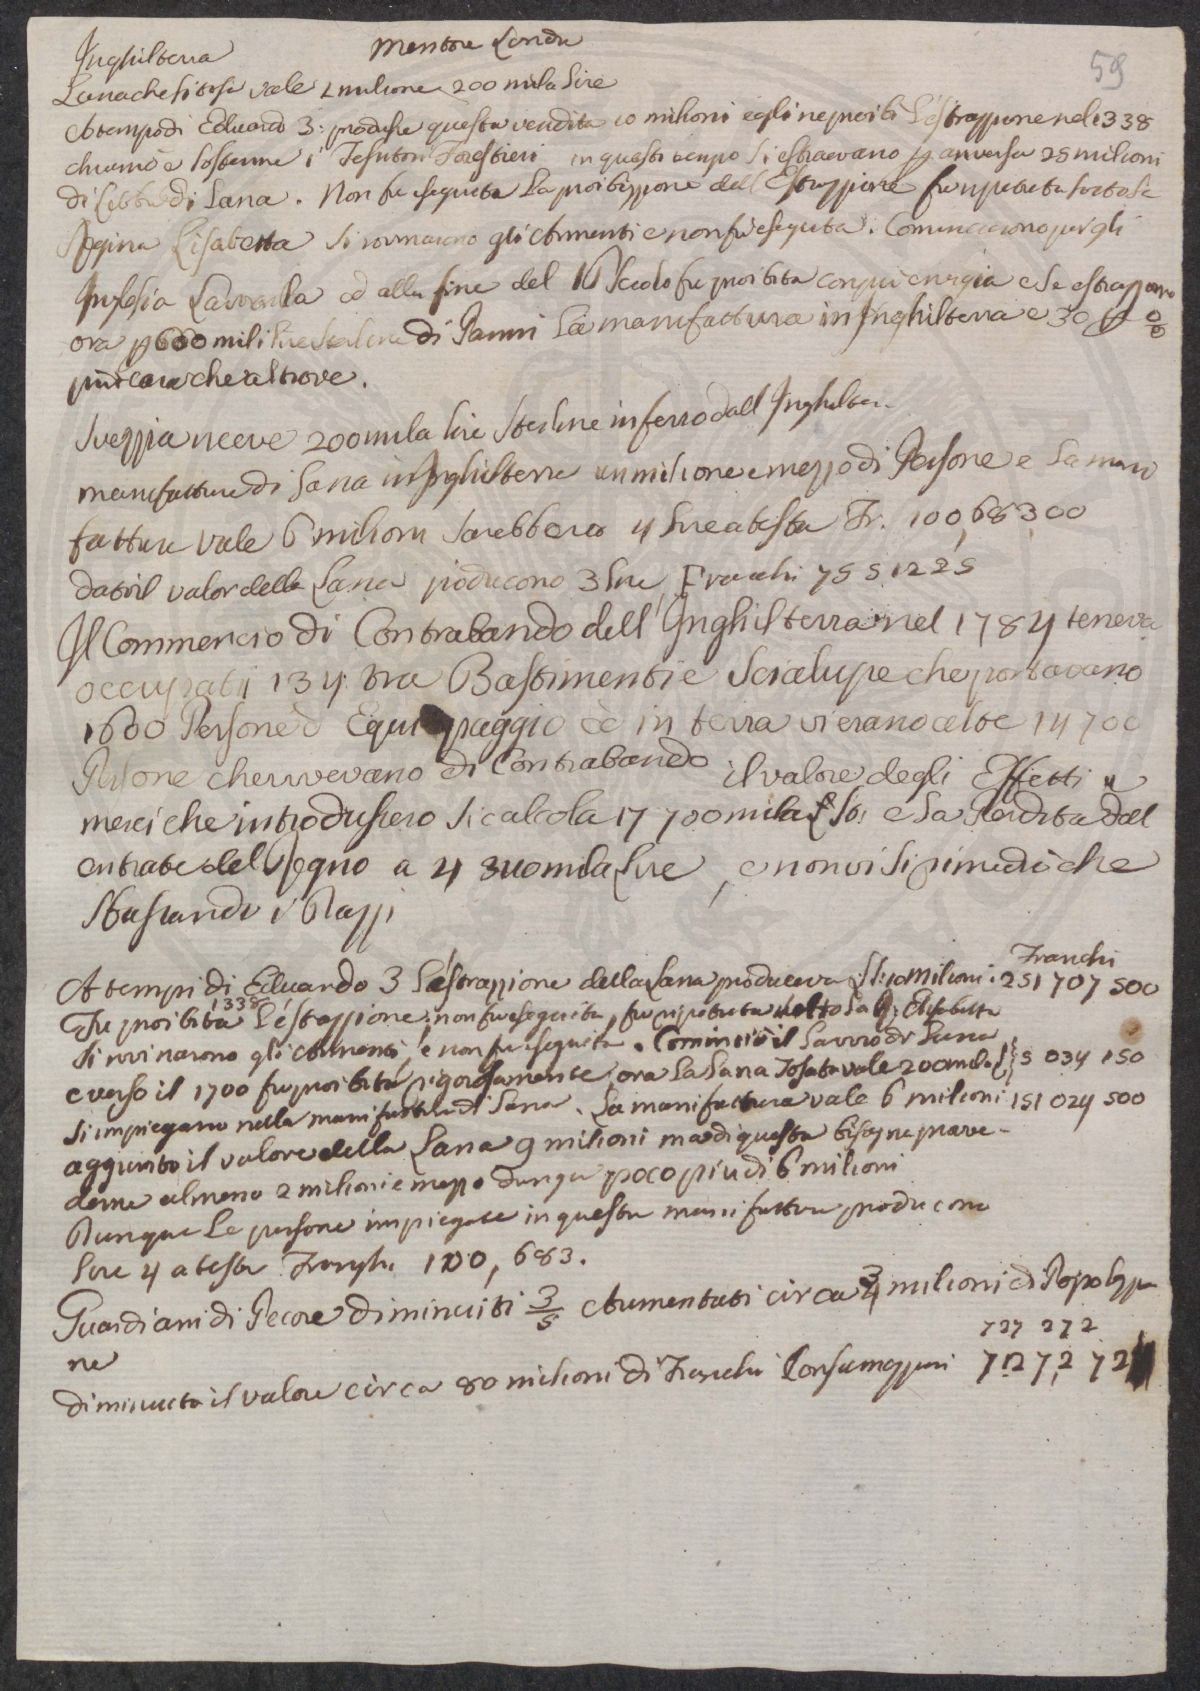 Inghilterra
59
Lana che si tosa vale 1 milione 200 mila lire
A tempo di Eduardo 3: produsse questa vendita 10 milioni egli ne proibì l'estrazzione nel 1338
chiamò e sostenne i Tesutori Forestieri in questi tempo si estraevano per anversa 25 milioni
di Libbre di Lana. Non fu eseguita la proibizzione dell Estrazzione fu ripetuta sotto la
Regina Lisabetta si rovinarono gli Armenti e non fù eseguita. Cominciarono per gli
Inglesia Lavorarla ed alla fine del Secolo fu proibita con più energia e se estrazzano
ora per 600 mili lire sterline di Panni La manifattura in Inghilterra e 30 per %
più cara che altrove.
Svezzia riceve 200 mila lire sterline in ferro dall Inghilter.
manifatture di Lana in Inghilterra un milione e mezzo di Persone e La mani
fattura vale 6 milioni sarebbero 4 lire a testa Fr. 100,683,00
dato il valor della Lana producono 3 lire, Franchi 75 5 12 25
Il Commercio di Contrabando dell' Inghilterra nel 1784 teneva
occupati 134 tra Bastimenti e Scialupe che portavano
1600 Persone d Equipaggio e in terra vi erano altre 14700
Persone che vivevano di Contrabando il valore degli Effetti e
merci che introdussero si calcola 17 700 mila £ St: e La Perdita dell
entrate del Regno a 4 300 mila Lire, e non vi si rimediò che
A tempi di Eduardo 3 L'estrazzione della Lana produceva £ St: 10 milioni . 251 707 500
Franchi
1338
Fu proibita L'estrazzione, non fu eseguita, fu ripetuta sotto la R: Elisabetta
si rovinarono gli Armenti, e non fu eseguita. Cominciò il Lavoro di Lana
e verso il 1700 fu proibita rigorosamente, ora La Lana Tosata vale 200 mila £ 5 034 150
si impiegano nella manifattura di Lana. La manifattura vale 6 milioni 151 024 500
aggiunto il valore della Lana 9 milioni ma di questa bisogna prave-
derne almeno 2 milioni e mezzo dunque poco più di 6 milioni
Dunque Le persone impiegate in questa manifattura producono
Lire 4 a testa Franchi 100, 683.
Guardiani di Pecore diminuiti 3/5 Aumentati circa 3/4 milioni di Popolazzio
ne
727 272
diminuita il valore circa 80 milioni di Franchi 7.27,2 72